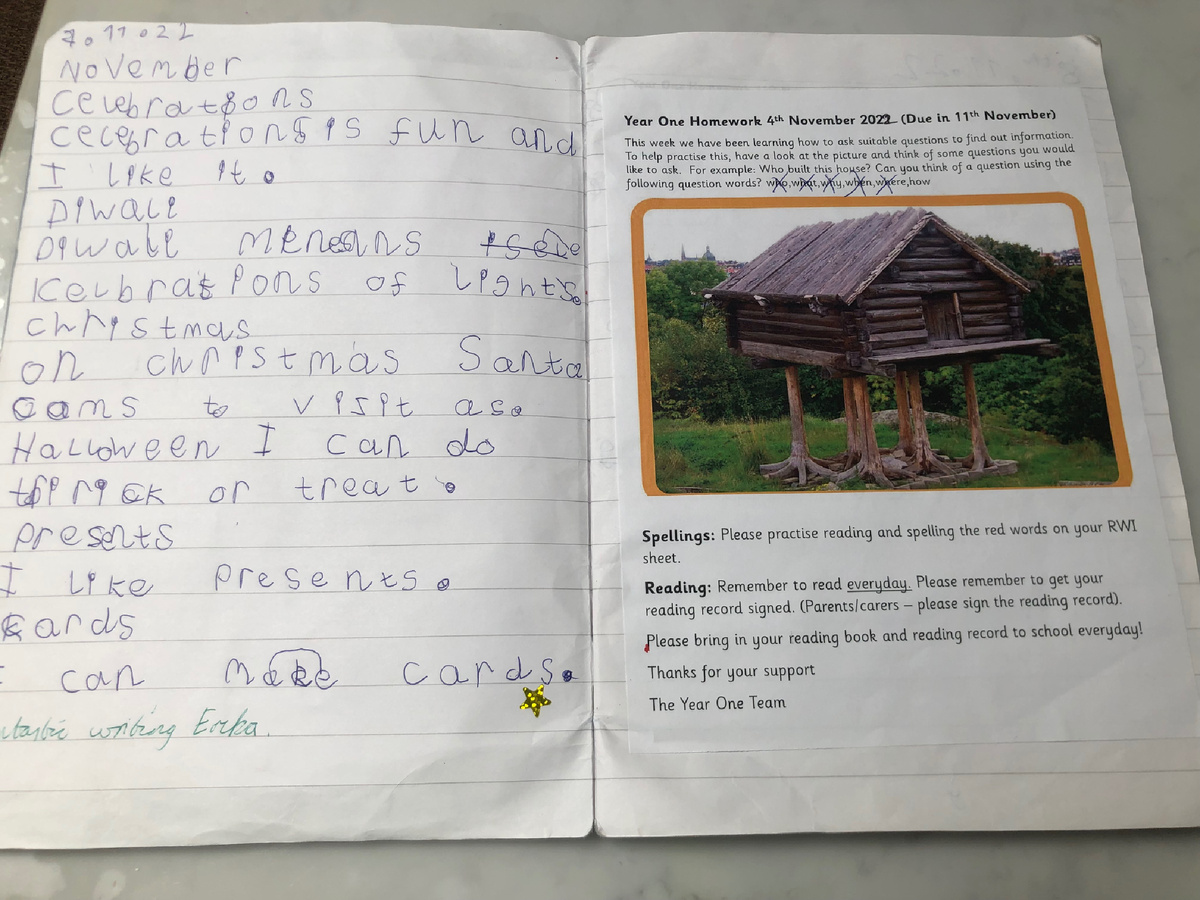 7.11.022
November
Celebrations
celebrations is fun and
I like it.
Diwali
Diwali means
kelbrations of lights.
christmas
on christmas Santa
cams to visit as.
Halloween I can do
trick or treat.
presents
I like presents.
cards
can make cards.
writing Erika.
Year One Homework 4th November 2022 (Due in 11th November)
This week we have been learning how to ask suitable questions to find out information.
To help practise this, have a look at the picture and think of some questions you would
like to ask. For example: Who built this house? Can you think of a question using the
following question words? who,what,why,when,where,how
Spellings: Please practise reading and spelling the red words on your RWI
sheet.
Reading: Remember to read everyday. Please remember to get your
reading record signed. (Parents/carers – please sign the reading record).
Please bring in your reading book and reading record to school everyday!
Thanks for your support
The Year One Team